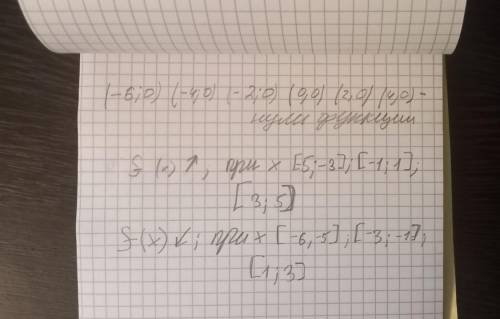 (-6;0) (-4;0) (-2;0) (0;0) (2;0) (4;0)-
нули функции
f(x)↑, при x [5;-3]; [-1;1];
[3;5]
f(x)↙; при x [-6,-5]; [-3;-1];
[1;3]